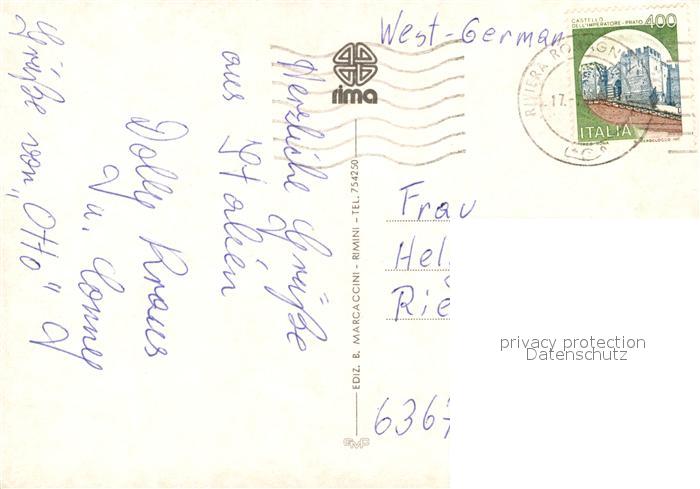 Herzliche Grüße
aus Italien
Dolly Kraus
u. Conny
Grüße von "Otto"
rima
EDIZ. B. MARCACCINI - RIMINI - TEL. 754250
West-German
CASTELLO
DELL'IMPERATORE - PRATO 400
ITALIA
RIVIERA ROMAGN
17.
Frau
Hel
Rie
6367
privacy protection
Datenschutz